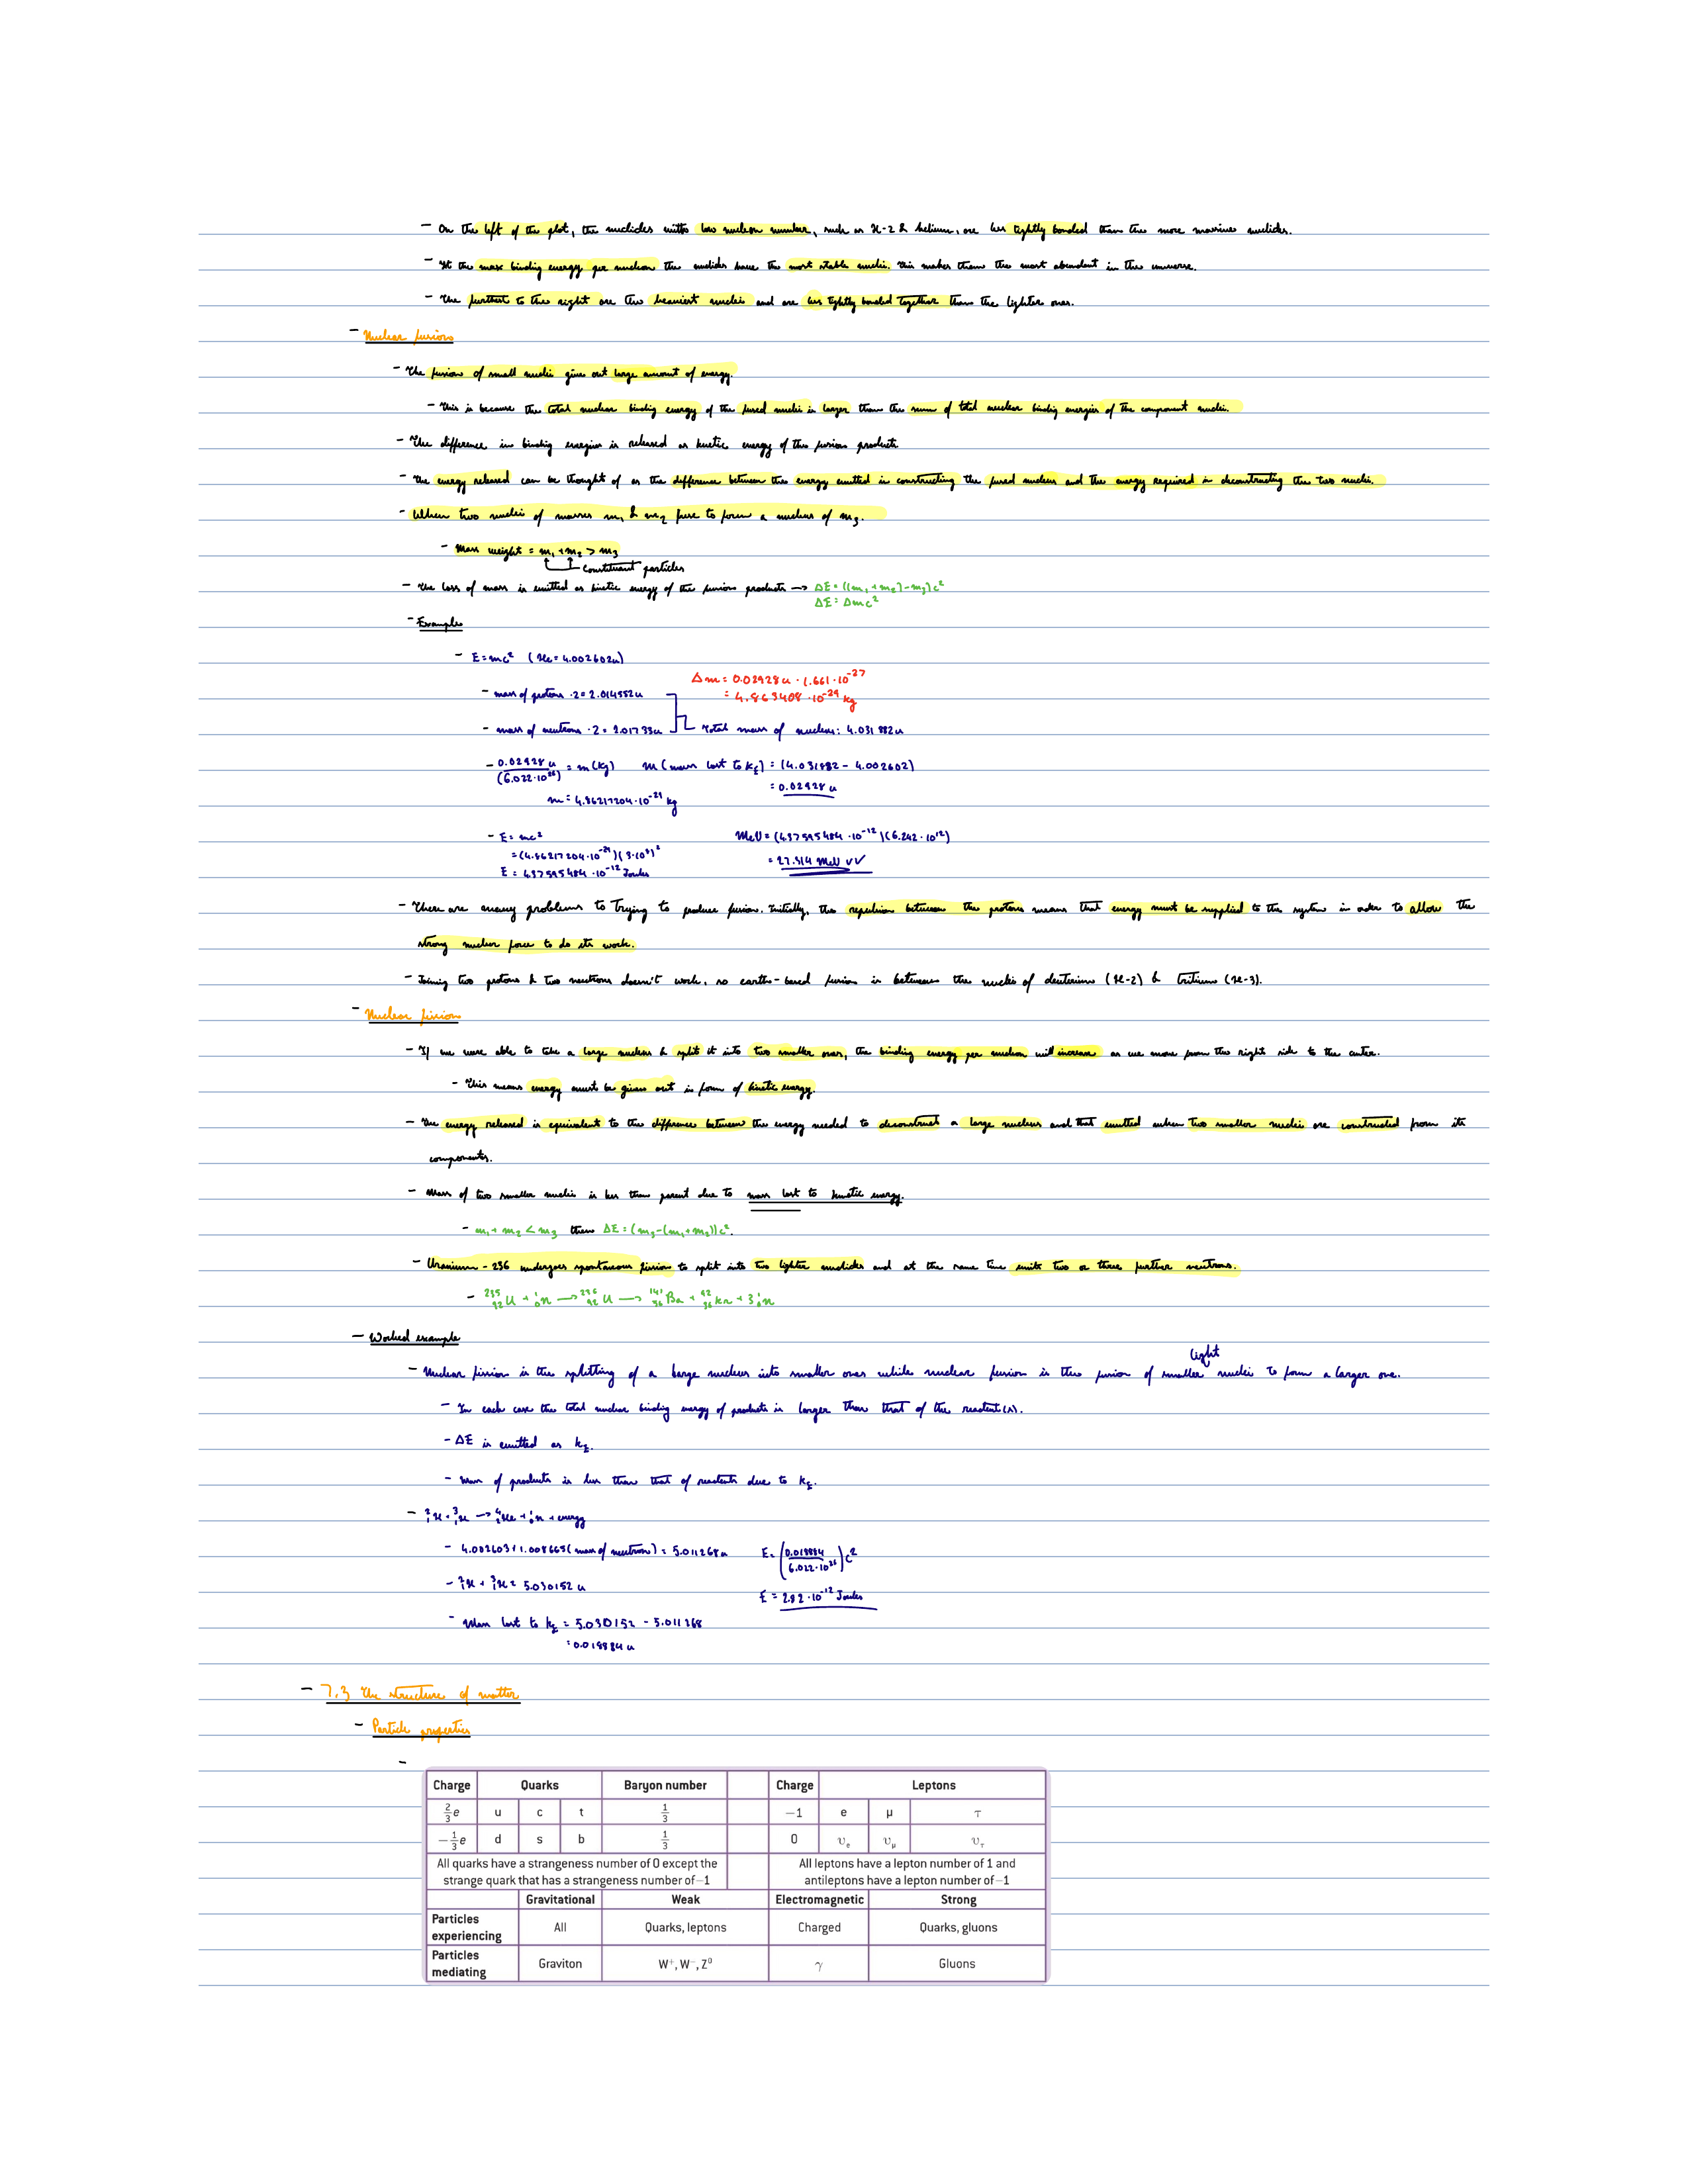 - On the left of the plot, the nuclides with low nucleon number, such as H-2 & helium, are less tightly bonded than the more massive nuclides.
- At the max binding energy per nucleon the nuclides have the most stable nuclei. This makes them the most abundant in the universe.
- The furthest to the right are the heaviest nuclei and are less tightly bonded together than the lighter ones.
- Nuclear fusion
- The fusion of small nuclei give out large amount of energy.
- This is because the total nuclear binding energy of the fused nuclei is larger than the sum of total nuclear binding energies of the component nuclei.
- The difference in binding energies is released as kinetic energy of the fusion products
- The energy released can be thought of as the difference between the energy emitted in constructing the fused nucleus and the energy required in deconstructing the two nuclei.
- When two nuclei of masses m₁ & m₂ fuse to form a nucleus of m₃.
- Mass weight = m₁+m₂ > m₃
constituent particles
- The loss of mass is emitted as kinetic energy of the fusion products → ΔE = ((m₁+m₂)-m₃)c²
ΔE = Δmc²
- Examples
- E=mc² (He = 4.002602u)
Δm = 0.02928u · 1.661·10⁻²⁷
- mass of protons ·2 = 2.014552u
= 4.863408·10⁻²⁹ kg
- mass of neutrons ·2 = 2.01733u
Total mass of nucleus: 4.031882u
- 0.02928u/(6.022·10²⁶) = m(kg) m (mass lost to K_E) = (4.031882 - 4.002602)
= 0.02928 u
m = 4.86217204·10⁻²⁹ kg
- E = mc² MeV = (4.37595484·10⁻¹²)(6.242·10¹²)
= (4.86217204·10⁻²⁹)(3·10⁸)² = 27.314 MeV
E = 4.37595484·10⁻¹² Joules
- There are many problems to trying to produce fusion. Initially, the repulsion between the protons means that energy must be supplied to the system in order to allow the
strong nuclear force to do its work.
- Joining two protons & two neutrons doesn't work, so earth-based fusion is between the nuclei of deuterium (H-2) & tritium (H-3).
- Nuclear fission
- If we were able to take a large nucleus & split it into two smaller ones, the binding energy per nucleon will increase as we move from the right side to the center.
- This means energy must be given out in form of kinetic energy.
- The energy released is equivalent to the difference between the energy needed to deconstruct a large nucleus and that emitted when two smaller nuclei are constructed from its
components.
- Mass of two smaller nuclei is less than parent due to mass lost to kinetic energy.
- m₁+m₂ < m₃ then ΔE = (m₃-(m₁+m₂))c².
- Uranium-236 undergoes spontaneous fission to split into two lighter nuclides and at the same time emits two or three further neutrons.
- ²³⁵₉₂U + ¹₀n → ²³⁶₉₂U → ¹⁴¹₅₆Ba + ⁹²₃₆Kr + 3¹₀n
- Worked example
light
- Nuclear fission is the splitting of a large nucleus into smaller ones while nuclear fusion is the fusion of smaller nuclei to form a larger one.
- In each case the total nuclear binding energy of products is larger than that of the reactant(s).
- ΔE is emitted as K_E.
- Mass of products is less than that of reactants due to K_E.
- ²₁H + ³₁H → ⁴₂He + ¹₀n + energy
- 4.002603 + 1.008665 (mass of neutron) = 5.011268u E = (0.018884/6.022·10²⁶)c²
- ²₁H + ³₁H = 5.030152 u
E = 2.82·10⁻¹² Joules
- Mass lost to K_E = 5.030152 - 5.011268
= 0.018884 u
- 7.3 The structure of matter
- Particle properties
-
Charge Quarks Baryon number Charge Leptons
2/3 e u c t 1/3 −1 e μ τ
−1/3 e d s b 1/3 0 υₑ υ_μ υ_τ
All quarks have a strangeness number of 0 except the All leptons have a lepton number of 1 and
strange quark that has a strangeness number of −1 antileptons have a lepton number of −1
Gravitational Weak Electromagnetic Strong
Particles
experiencing All Quarks, leptons Charged Quarks, gluons
Particles
mediating Graviton W⁺, W⁻, Z⁰ γ Gluons